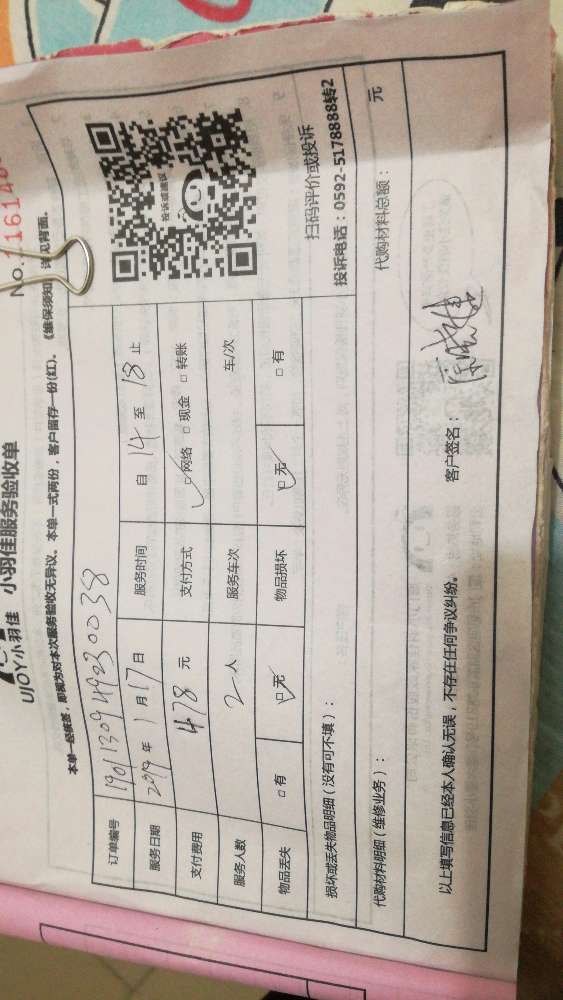 No. 116140
UJOY小羽佳 小羽佳服务验收单
本单一经签署，即视为对本次服务验收无异议。本单一式两份，客户留存一份(红)。《维保须知》详见背面。
订单编号
服务日期 2019 年 1 月 17 日 服务时间 自 14 至 18 止
支付费用 478 元 支付方式 ☑网络 □现金 □转账
服务人数 2 人 服务车次 车/次
物品丢失 □有 ☑无 物品损坏 ☑无 □有
投诉或建议
损坏或丢失物品明细（没有可不填）：
扫码评价或投诉
投诉电话：0592-5178888转2
代购材料明细（维修业务）： 代购材料总额： 元
以上填写信息已经本人确认无误，不存在任何争议纠纷。 客户签名：